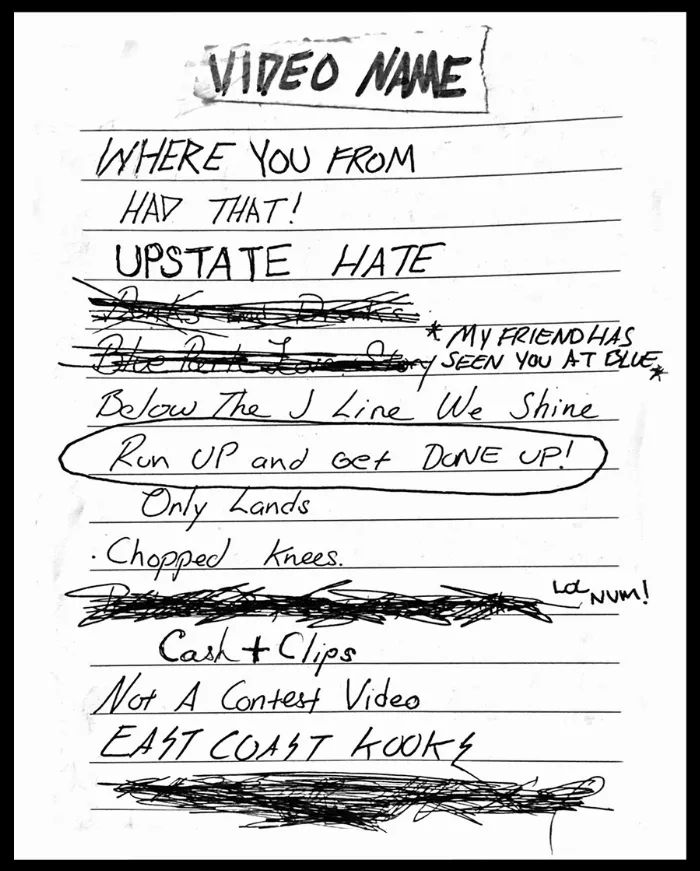 VIDEO NAME
WHERE YOU FROM
HAD THAT!
UPSTATE HATE
Donks and Drinks
Blue Park Love Story
* MY FRIEND HAS
SEEN YOU AT BLUE *
Below The J Line We Shine
Run UP and Get DONE UP!
Only Lands
Chopped Knees.
LOL
NUM!
Cash + Clips
Not A Contest Video
EAST COAST KOOKS